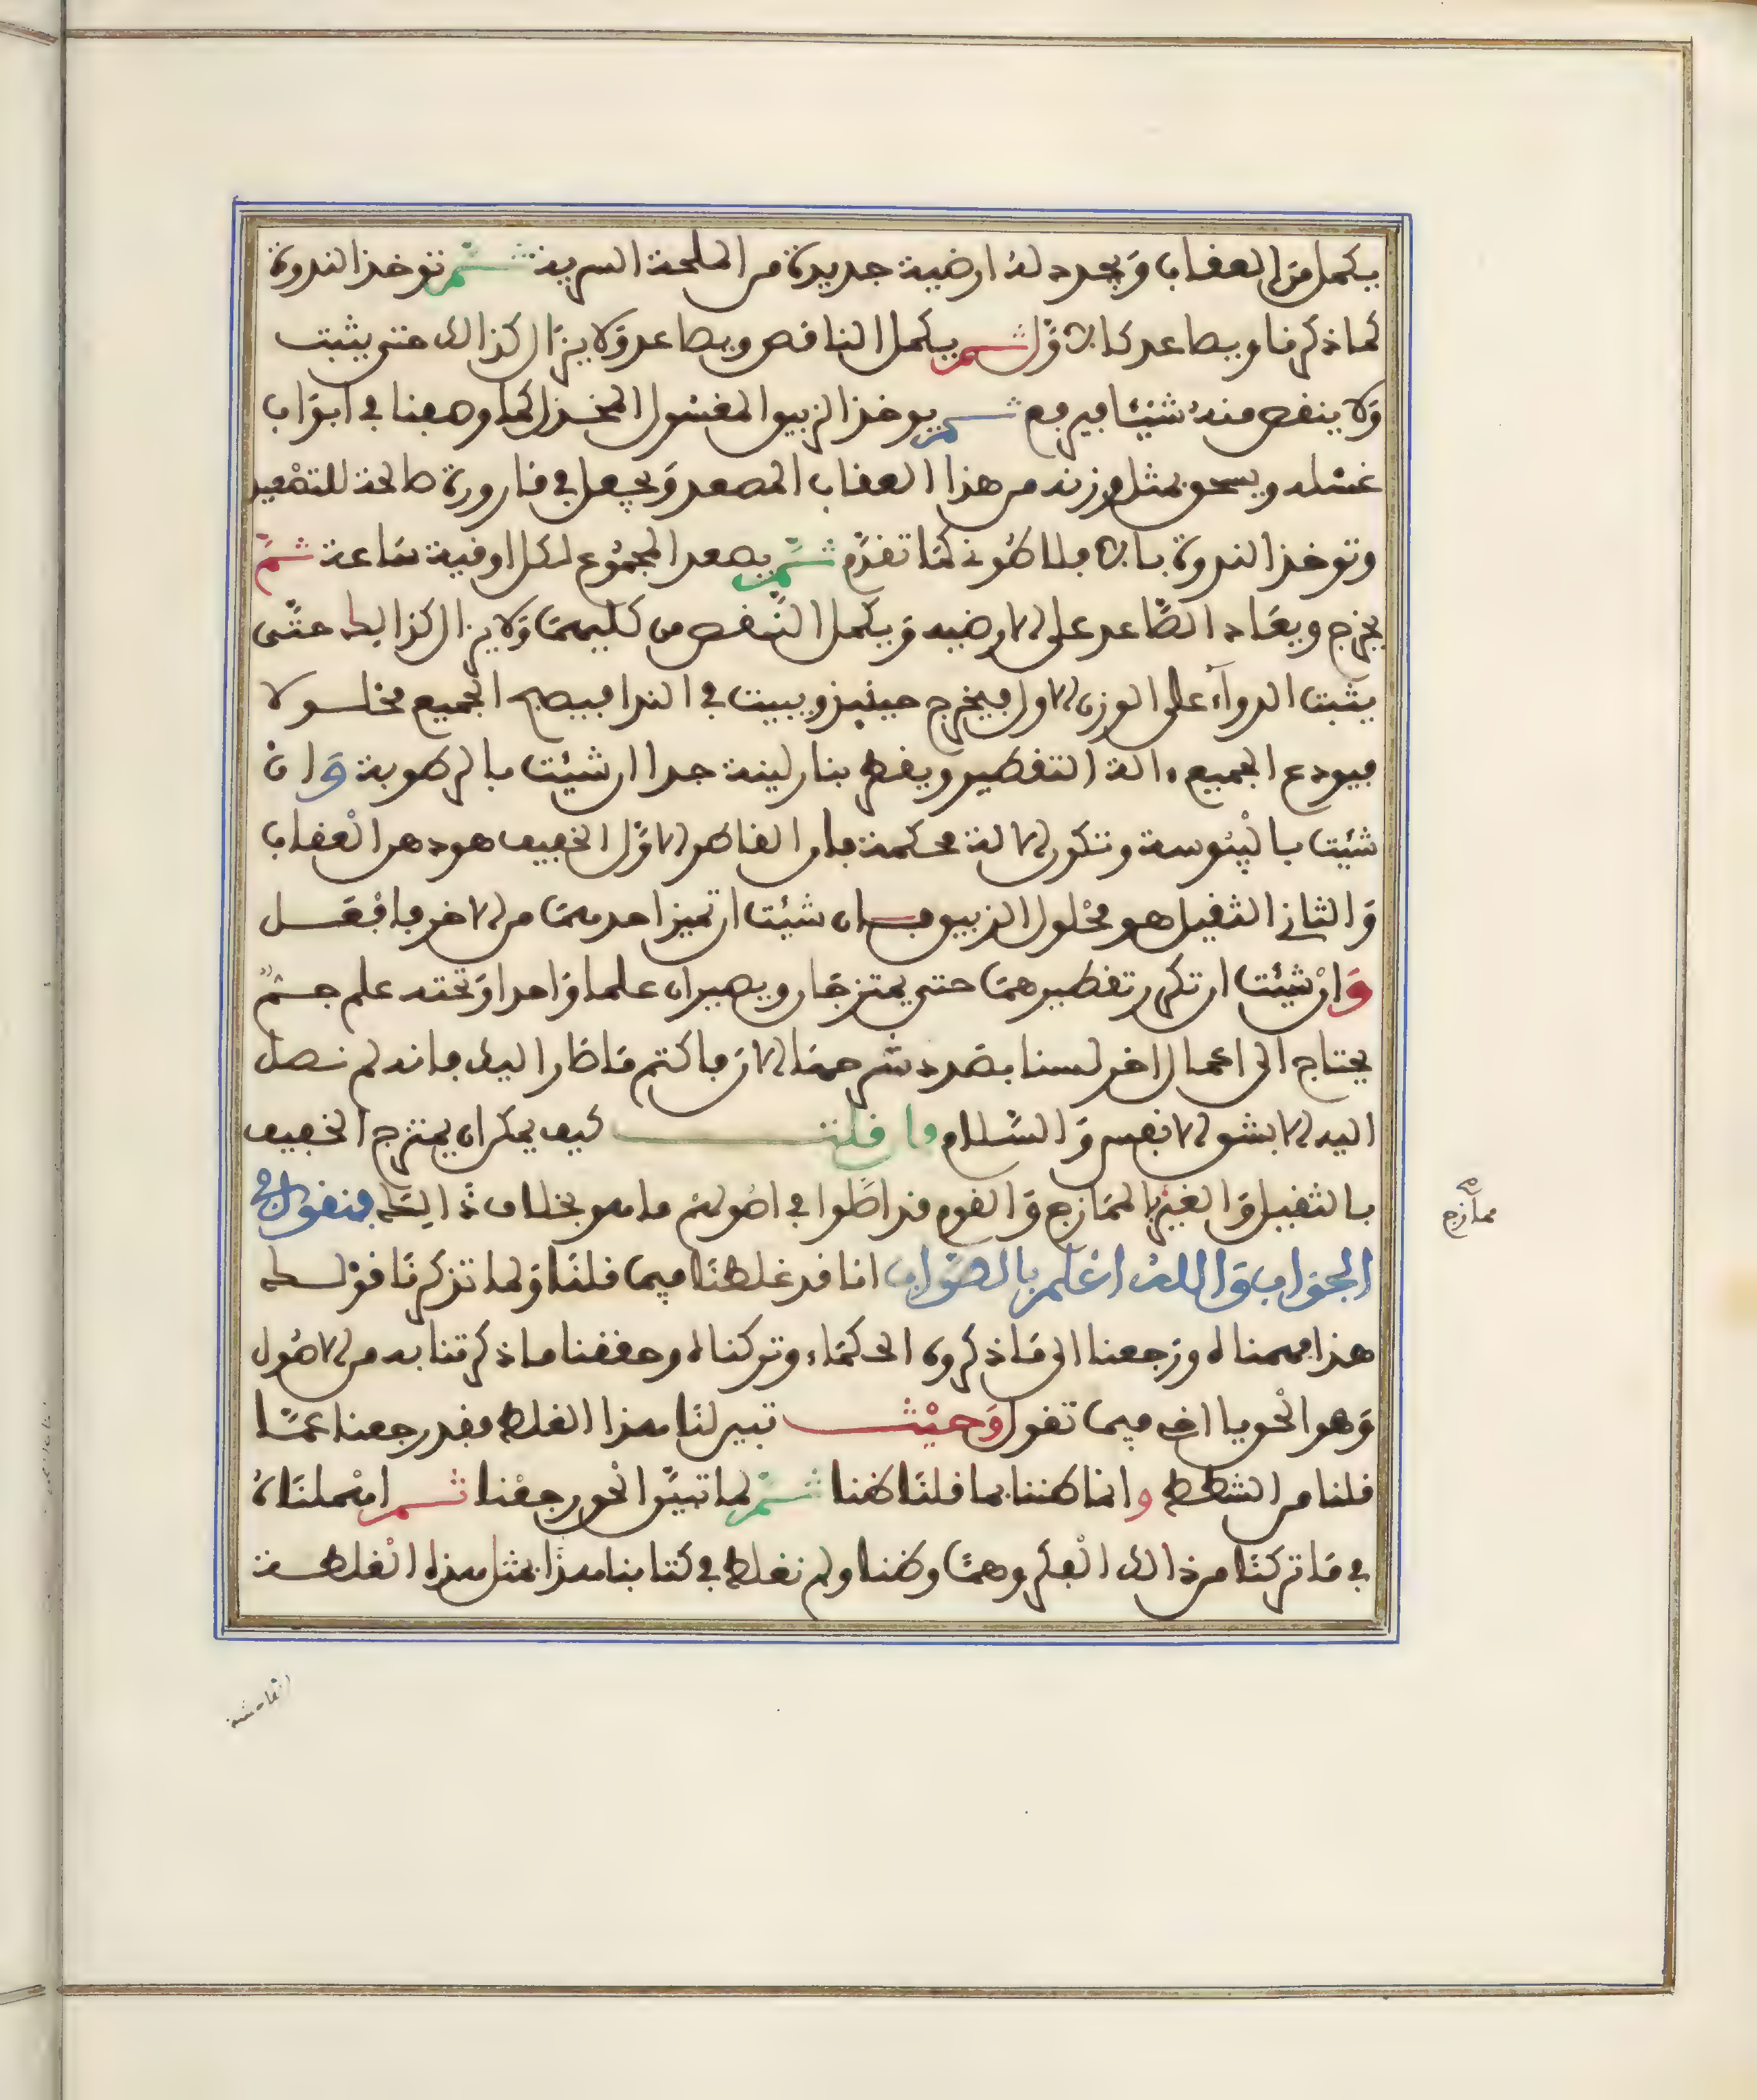 يكمل من العقاب ويجدد له ارضية جديدة من الملحة السرية ثم توخذ الندوة
كما ذكرنا ويصاعد كالاول ثم يكمل الناقص ويصاعد ولا يزال كذالك حتى يثبت
ولا ينقص منه شيئا فيرفع ثم يوخذ الزيبق المغسول المخذر كما وصفنا في ابواب
غسله ويسحق بمثل وزنه من هذا العقاب المصعد ويجعل في قارورة صالحة للتصعيد
وتوخذ الندوة بالافلاطوني كما تقدم ثم يصعد المجموع لكل اوقية ساعة ثم
يخرج ويعاد الصاعد على الارضيه ويكمل النقص من كليهما ولا يزال كذالك حتى
يثبت الدواء على الوزن الاول فيخرج حينئذ ويبيت في الندا فيصبح الجميع محلولا
فيودع الجميع ءالة التقطير ويقطر بنار لينة جدا ان شيئت بالرطوبة وان
شئت باليبوسة وتكون الالة محكمة فان القاطر الاول الخفيف هو دهن العقاب
والثاني الثقيل هو محلول الزيبق فان شيئت ان تميز احدهما من الاخر فافعل
وان شيئت ان تكرر تقطيرهما حتى يمتزجان ويصيران علما واحدا وتحته علم جم
يحتاج الى اعمال اخر لسنا بصدد شرحها الان فاكتم ما صار اليك فانه لم نصل
اليه الا بشق الانفس والسلام فان قلت كيف يمكن ان يمتزج الخفيف
بالثقيل والغير الممازج والقوم قد اصلوا في اصولهم ما هو بخلاف ذالك فنقول في
الجواب والله اعلم بالصواب انا قد غلطنا فيما قلنا ولما تذكرنا قولك
هذا فهمناه ورجعنا الى ما ذكروه الحكماء وتركناه وحققنا ما ذكرتنا به من الاصول
وهو الحق يا اخي فيما تقول وحيث تبين لنا هذا الغلط فقد رجعنا عما
قلنا من الشطط وانما ظننا بما قلنا ظنا ثم لما تبين الحق رجعنا ثم اهملناه
في ما تركنا من ذالك الفكر وهما وظنا ولم نغلط في كتابنا هذا بمثل هذه الغلطة
ممازج